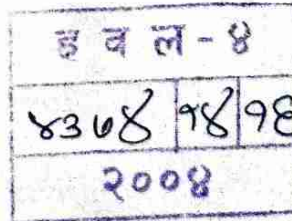 ह व ल - ४
४३७४ १४
२००४